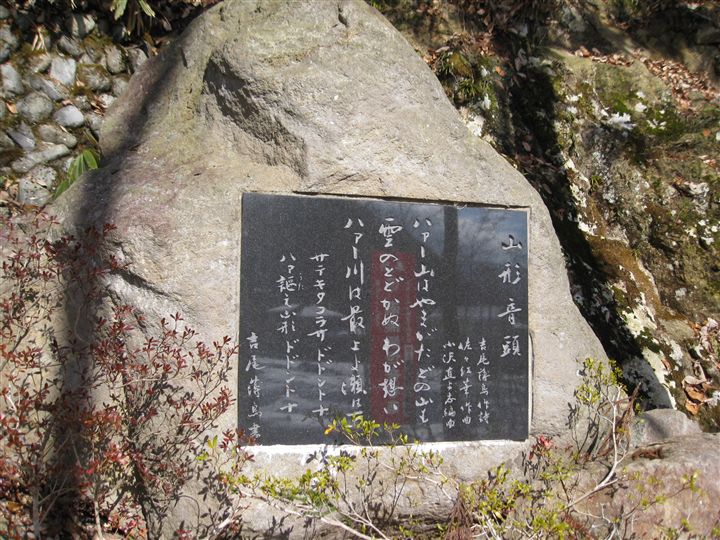 山形音頭
吉尾博烏作詩
佐々紅華作曲
小沢直与志編曲
ハァー山はやまがたどの山も
雲のどかぬわが想い
ハァー川は最上よ瀬は
サテキタコラサドドントナ
ハァ謳え山形ドドントナ
うた
吉尾博烏書